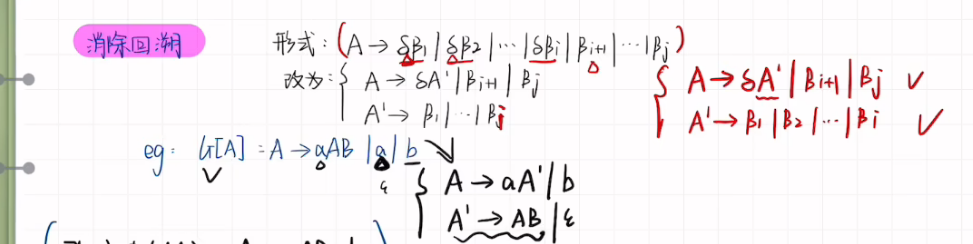 消除回溯
形式:(A → δβ₁ | δβ₂ | ⋯ | δβi | βi+1 | ⋯ | βj)
改为:{ A → δA' | βi+1 | βj
A' → β₁ | ⋯ | βj
{ A → δA' | βi+1 | βj ✓
A' → β₁ | β₂ | ⋯ | βi ✓
eg: G[A] : A → aAB | a | b
ε
{ A → aA' | b
A' → AB | ε